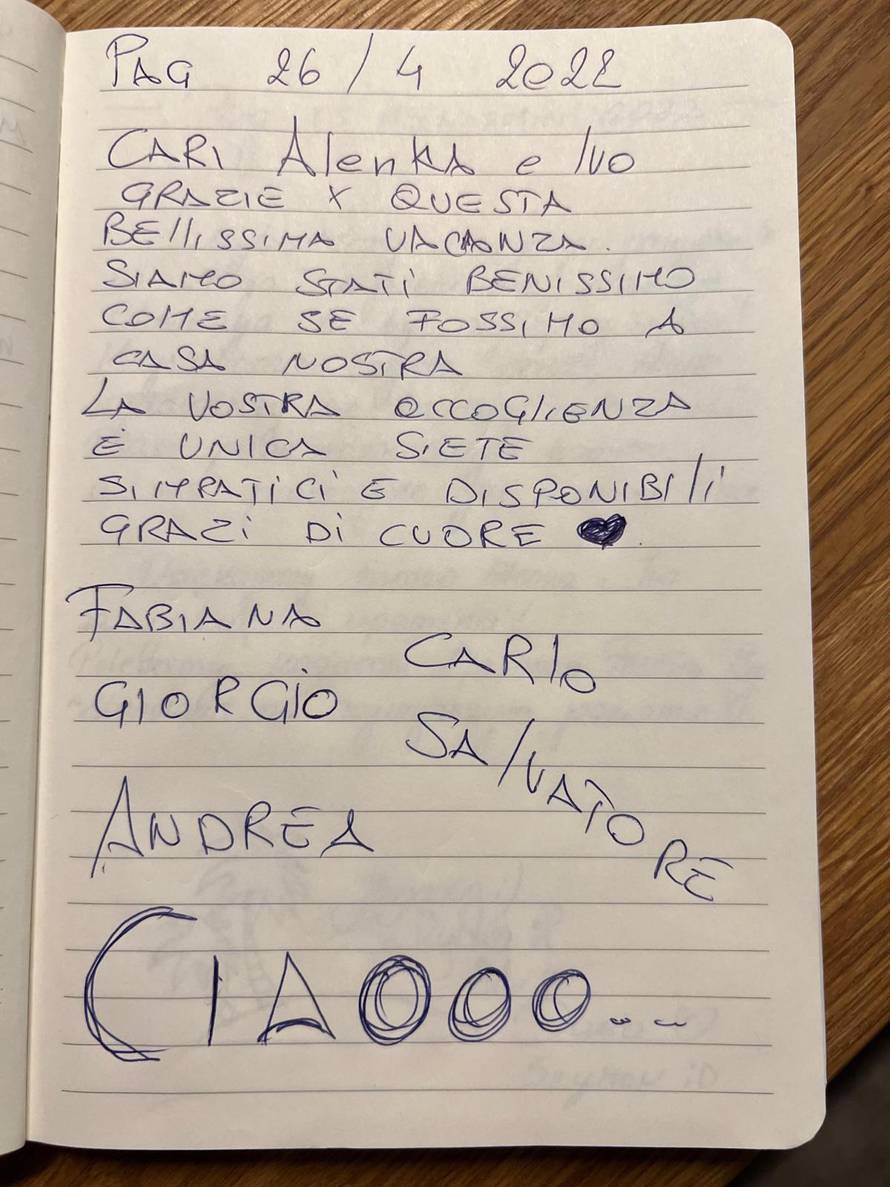 PAG 26/4 2022
CARI AlenKA e Ivo
GRAZIE X QUESTA
BEllISSIMA VACANZA.
SIAMO STATI BENISSIMO
COME SE FOSSIMO A
CASA NOSTRA
LA VOSTRA ACCOGlIENZA
È UNICA SIETE
SIMPATICI E DISPONIBIlI
GRAZI DI CUORE ♥.
FABIANA
CARlO
GIORGIO
SAlVATORE
ANDREA
CIAOOO...